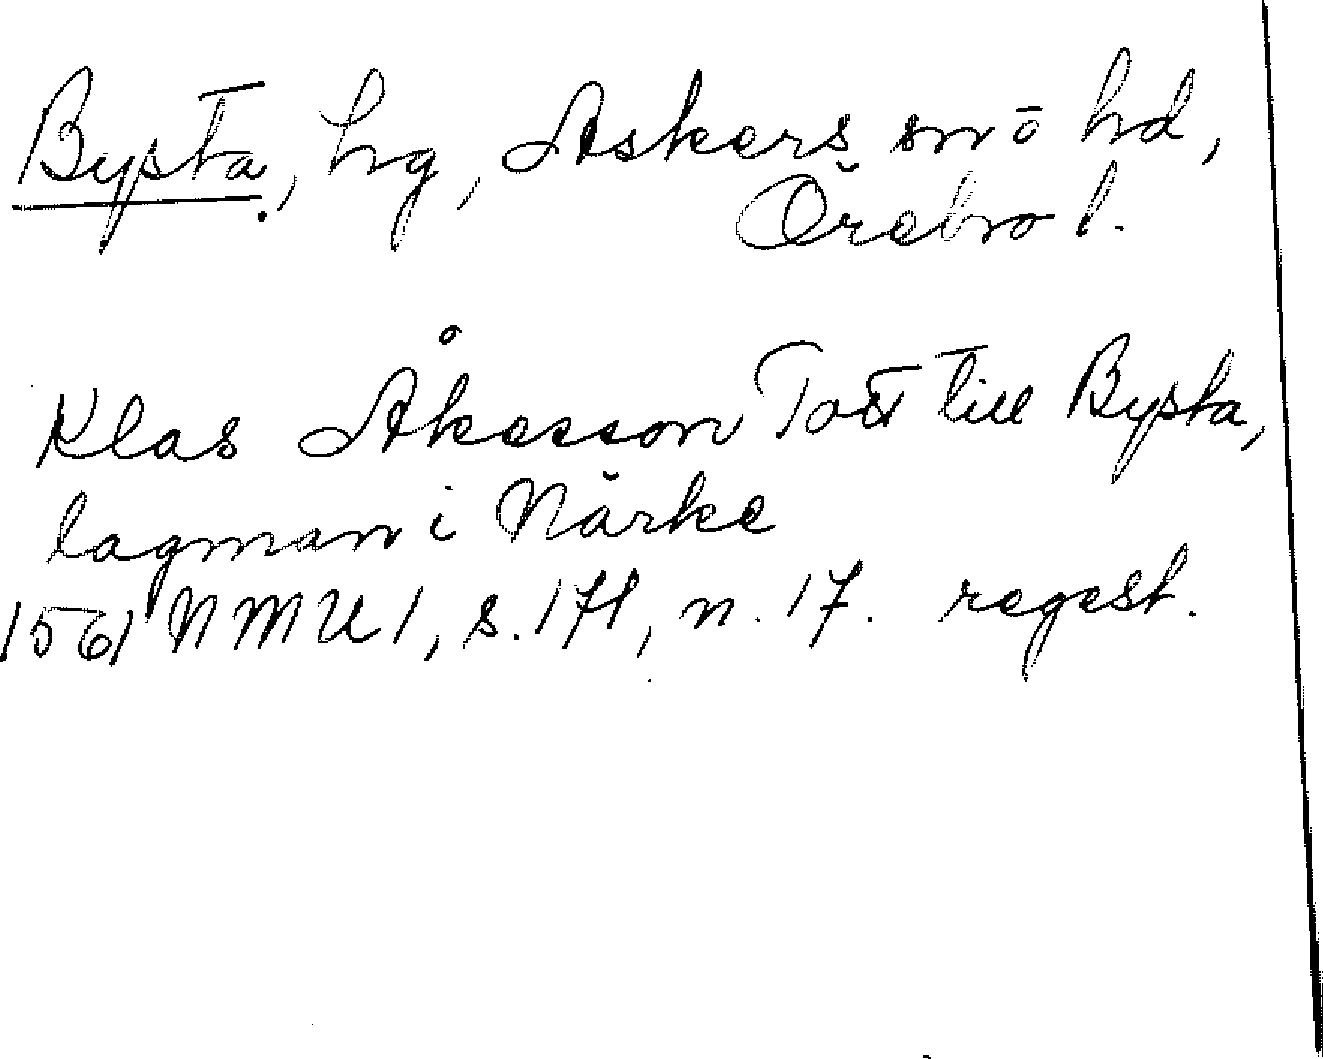 Bysta, hg, Askers sn o hd,
Örebro l.
Klas Åkesson Tott till Bysta,
lagman i Närke
1561 NMU 1, s. 171, n. 17. regest.